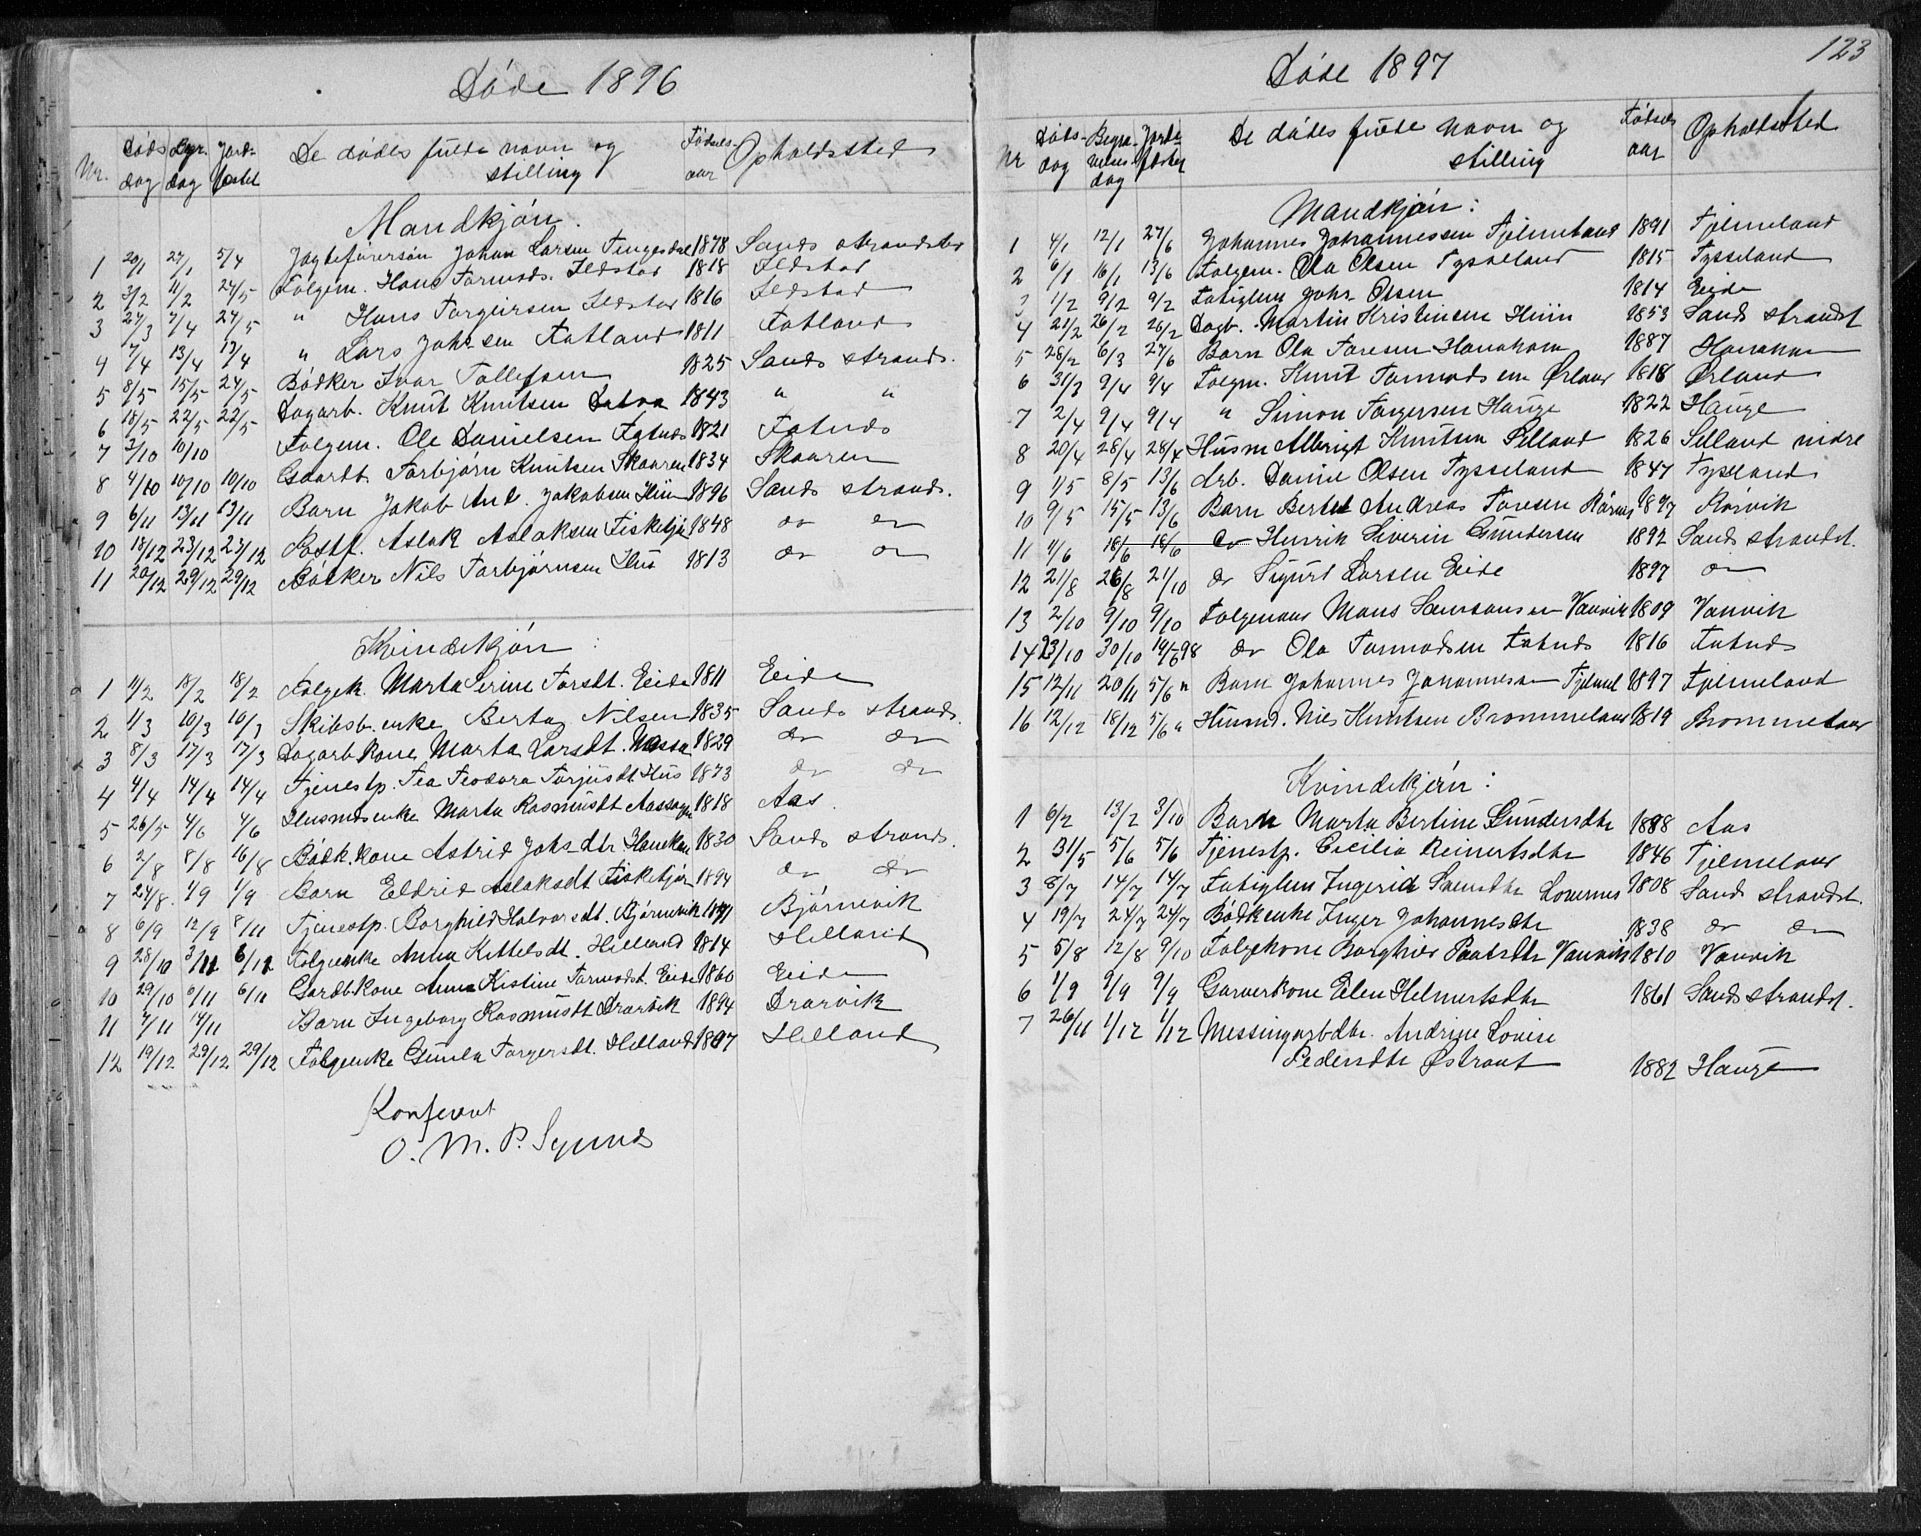 Døde 1896
Nr. Døds dag Begr. dag Jord-fæstet De dødes fulde navn og stilling Fødsels-aar Opholdssted
Mandkjøn.
1 20/1 27/1 5/4 Jagteförersön Johan Larsen 1878 Sands strandsted
2 3/2 11/2 24/5 Folgem. Hans Tormods. Ilstad 1818 Ilstad
3 27/3 7/4 24/5 " Hans Torgeirsen Ilstad 1816 Ilstad
4 7/4 13/4 13/4 " Lars Johs-sen Fatland 1811 Fatland
5 8/5 15/5 24/5 Bödker Ivar Tollefsen 1825 Sands strands.
6 18/5 22/5 22/5 Dagarb. Knut Knutsen 1843 " "
7 3/10 10/10 Folgem. Ole Danielsen Fatnes 1821 Fatnes
8 4/10 10/10 10/10 Gaardb. Torbjørn Knutsen Skaaren 1834 Skaaren
9 6/11 13/11 13/11 Barn Jakob And. Jakobsen Hiim 1896 Sands strands.
10 18/12 23/12 23/12 Postf. Aslak Aslaksen Fisketjø 1848 do do
11 20/12 29/12 29/12 Bödker Nils Torbjørnsen Hus 1813 do do
Kvindekjön:
1 11/2 18/2 18/2 Folgek. Marta Serine Torsdt. Eide 1811 Eide
2 1/3 10/3 10/3 Skibsb.enke Berta Nilsen 1835 Sands strands.
3 8/3 17/3 17/3 Dagarb.kone Marta Larsdt. 1829 do do
4 4/4 14/4 14/4 Tjenestp. Tea Teodora Torjusdt. Hus 1873 do do
5 26/5 4/6 4/6 Husmdsenke Marta Rasmusdt. 1818 Aas.
6 2/8 8/8 16/8 Bödk.kone Astrid Johs-dtr. 1830 Sands strands.
7 24/8. 1/9 1/9 Barn Eldrid Aslaksdt. Fisketjør 1894 do do
8 6/9 12/9 8/11 Tjenestp. Borghild Halvorsdt. Bjørnevik Bjørnevik
9 28/10 3/11 6/12 Folgenke Anna Kittelsdt. Hilland 1814 Hilland
10 29/10 6/11 6/11 Gardb.kone Anna Kistine Tormodst. Eide 1860 Eide
11 7/11 14/11 Barn Ingeborg Rasmusdt. Drarvik 1894 Drarvik
12 19/12 29/12 29/12 Folgenke Gunla Torgersdt. Hilland 1807 Hilland
Konferert
O. M. P.
123
Døde 1897
Nr Døds-dag Begra-velses-dag Jords-fæstet De dødes fulde navn og stilling Fødsels aar Opholdssted
Mandkjøn:
1 4/1 12/1 27/6 Johannes Johannessen Fjelmeland 1891 Fjelmeland
2 6/1 16/1 13/6 Folgem. Ola Olsen Tysseland 1815 Tysseland
3 1/2 9/2 9/2 Fatiglem Johs. Olsen 1814 Eide
4 21/2 26/2 26/2 Dagb. Martin Kristensen Hiim 1853 Sands strandst
5 28/2 6/3 27/6 Barn Ola Toresen Hanakam 1887 Hanakam
6 31/3 9/4 9/4 Folgm. Knut Tormodsen Ørland 1818 Ørland
7 2/4 9/4 9/4 " Simon Torgersen Hauge 1822 Hauge
8 20/4 28/4 28/4 Husm Albrigt Knutsen Selland 1826 Selland nidre
9 1/5 8/5 13/6 Arb. Daniel Olsen Tysseland 1847 Tysseland
10 9/5 15/5 13/6 Barn Bertel Andreas Toresen Rörvig 1897 Rørvik
11 11/6 18/6 18/6 do Henrik Severin Gundersen 1892 Sands strandst.
12 21/8 26/8 21/10 do Sigurt Larsen Eide 1897 do
13 2/10 9/10 9/10 Folgemand Mons Samsonsen Vanvik 1809 Vanvik
14 23/10 30/10 19/5 98 do Ola Tormodsen Fatnes 1816 Fatnes
15 12/11 20/11 5/6 " Barn Johannes Johannessen Fjelmel 1897 Fjelmeland
16 12/12 18/12 5/6 " Husmd. Nils Knutsen Brommeland 1819 Brommeland
Kvindekjøn:
1 6/2 13/2 3/10 Barn Marta Bertine Gundersdtr 1888 Aas
2 31/5 5/6 5/6 Tjenestp. Cecilia Reinertsdtr 1846 Fjelmeland
3 8/7 14/7 14/7 Fatiglem Ingerid Svensdtr Lovernes 1808 Sands strandst.
4 19/7 24/7 24/7 Bödkenke Inger Johannesdtr 1838 do do
5 5/8 12/8 9/10 Folgekone Borghild Paalsdtr Vanvik 1810 Vanvik
6 1/9 9/9 9/9 Garverkone Elen Helmertsdtr 1861 Sands strandst.
7 26/11 1/12 1/12 Messingarbdtr. Andrine Lovise
Pedersdtr Østraat 1882 Hauge